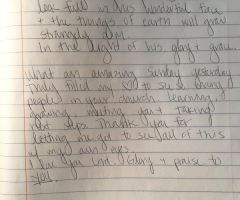 look full in his wonderful face
+ the things of earth will grow
strangely dim.
In the light of his glory + grace.
what an amazing Sunday yesterday
Truly filled my ♡ to see so many
people in your church. Learning,
growing, meeting you + taking
next steps. Thank you for
letting me get to see all of this
w/ my own eyes.
I love you Lord. Glory + praise to
you!